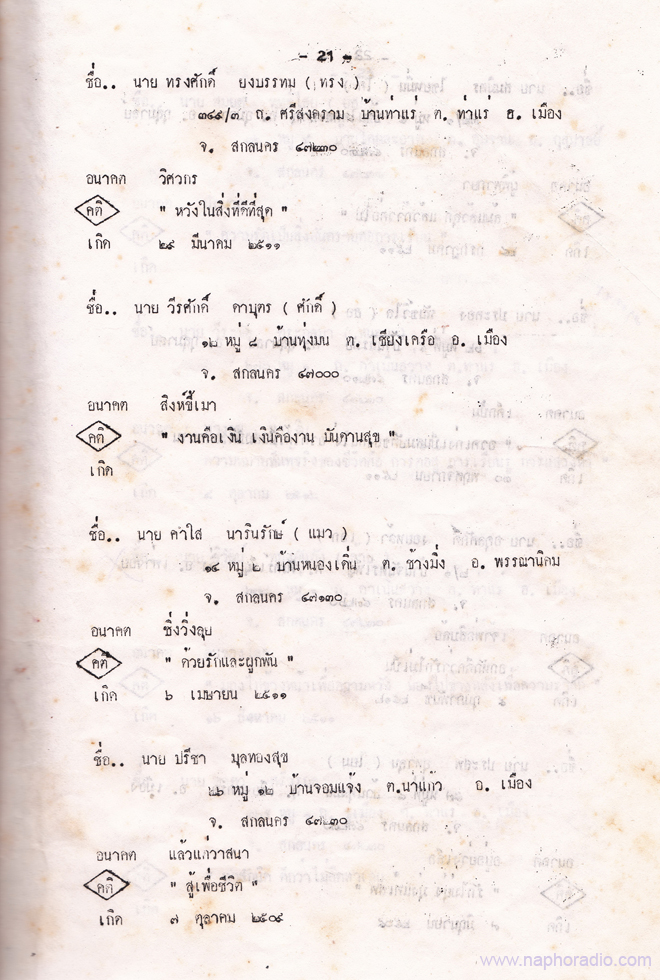 - 21 -
ชื่อ.. นาย ทรงศักดิ์ ยงบรรทม ( ทรง )
๓๔๙/๓ ถ. ศรีสงคราม บ้านท่าแร่ ต. ท่าแร่ อ. เมือง
จ. สกลนคร ๔๗๒๓๐
อนาคต วิศวกร
คติ " หวังในสิ่งที่ดีที่สุด "
เกิด ๒๙ มีนาคม ๒๕๑๑
ชื่อ.. นาย วีรศักดิ์ ดาบุตร ( ศักดิ์ )
๑๒ หมู่ ๘ บ้านทุ่งมน ต. เชียงเครือ อ. เมือง
จ. สกลนคร ๔๗๐๐๐
อนาคต สิงห์ขี้เมา
คติ " งานคือเงิน เงินคืองาน บันดานสุข "
เกิด
ชื่อ.. นาย คำใส นารินรักษ์ ( แมว )
๑๔ หมู่ ๒ บ้านหนองเดิ่น ต. ช้างมิ่ง อ. พรรณานิคม
จ. สกลนคร ๔๗๑๓๐
อนาคต ซิ่งวิ่งลุย
คติ " ด้วยรักและผูกพัน "
เกิด ๖ เมษายน ๒๕๑๑
ชื่อ.. นาย ปรีชา มุลทองสุข
๒๖ หมู่ ๑๒ บ้านจอมแจ้ง ต.นาแก้ว อ. เมือง
จ. สกลนคร ๔๗๒๓๐
อนาคต แล้วแต่วาสนา
คติ " สู้เพื่อชีวิต "
เกิด ๗ ตุลาคม ๒๕๐๙
www.naphoradio.com